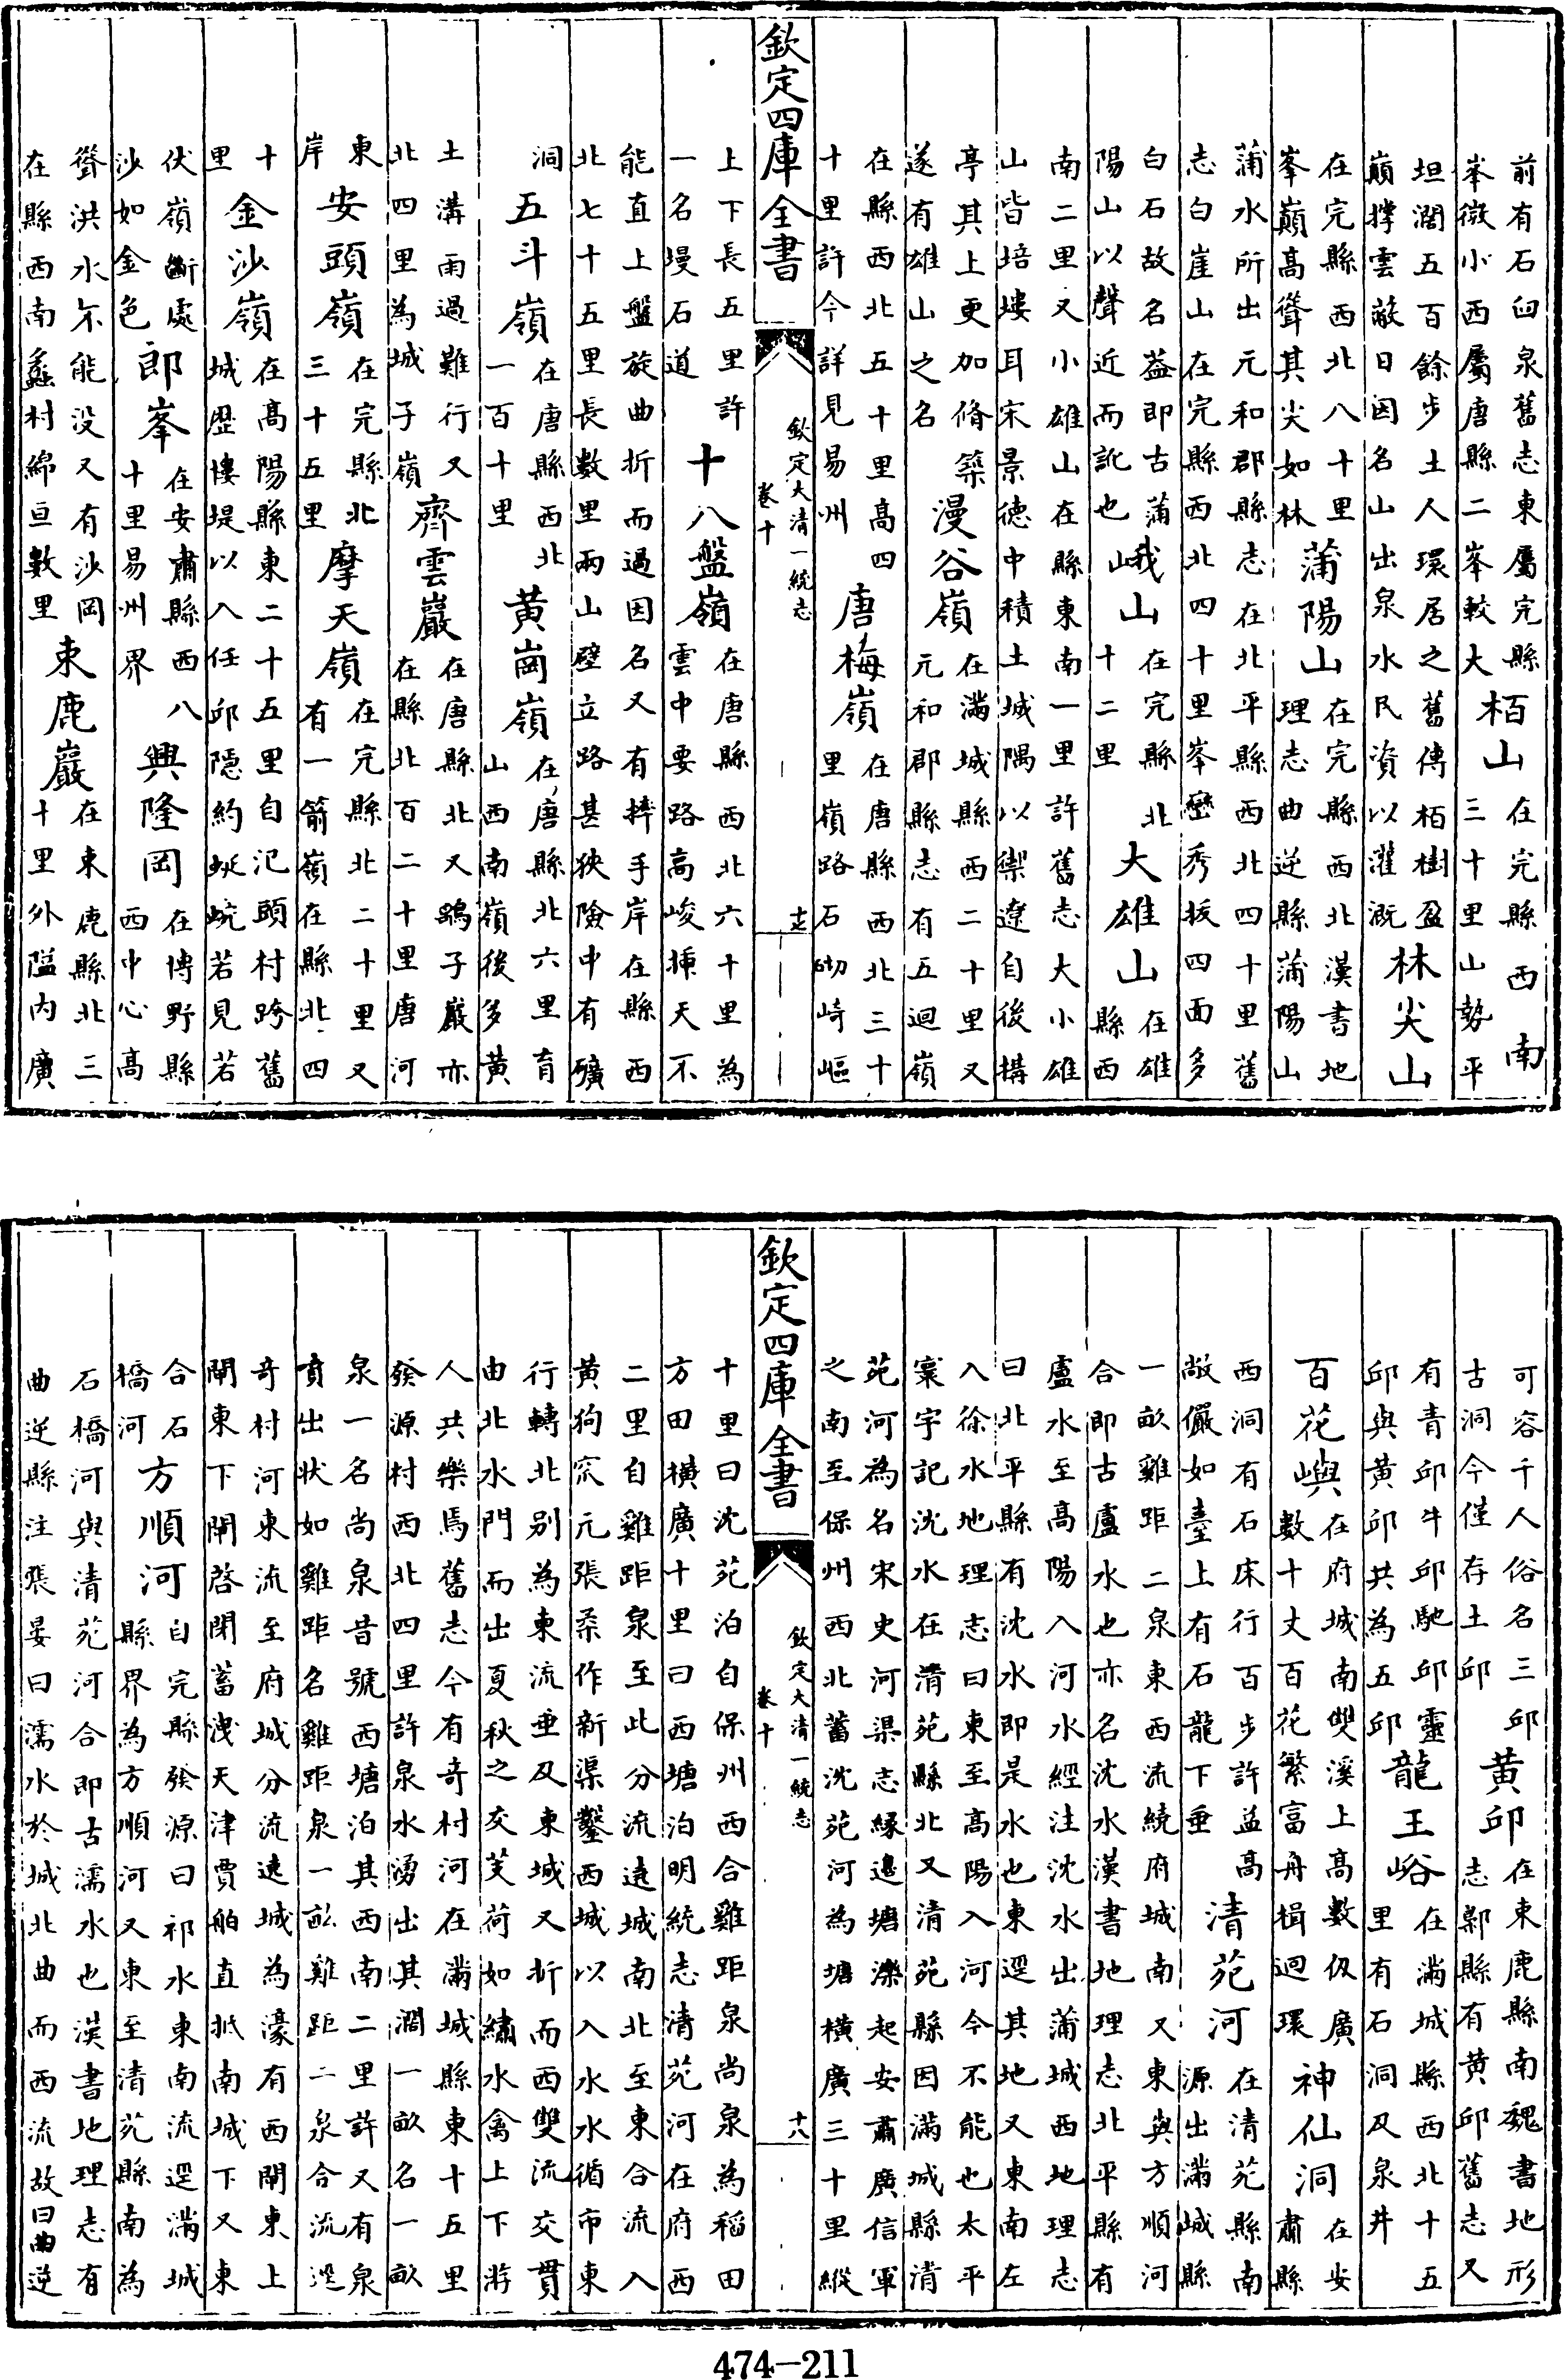 前有石臼泉舊志東屬完縣
峯微小西屬唐縣二峯較大
栢山
在完縣西南
三十里山勢平
坦濶五百餘步土人環居之舊傳栢樹盈
巔撑雲蔽日因名山出泉水民資以濯溉
林尖山
在完縣西北八十里
峯巔高聳其尖如林
蒲陽山
在完縣西北漢書地
理志曲逆縣蒲陽山
蒲水所出元和郡縣志在北平縣西北四十里舊
志白崖山在完縣西北四十里峯巒秀拔四面多
白石故名益即古蒲
陽山以聲近而訛也
峨山
在完縣北
十二里
大雄山
在雄
縣西
南二里又小雄山在縣東南一里許舊志大小雄
山皆培塿耳宋景德中積土城隅以禦遼自後搆
亭其上更加脩築
遂有雄山之名
漫谷嶺
在滿城縣西二十里又
元和郡縣志有五迴嶺
在縣西北五十里高四
十里許今詳見易州
唐梅嶺
在唐縣西北三十
里嶺路石砌崎嶇
欽定四庫全書
欽定大清一統志
卷十
十七
上下長五里許
一名墁石道
十八盤嶺
在唐縣西北六十里為
雲中要路高峻捶天不
能直上盤旋曲折而過因名又有摔手岸在縣西
北七十五里長數里兩山壁立路甚狹險中有礦
洞
五斗嶺
在唐縣西北
一百十里
黄崗嶺
在唐縣北六里育
山西南嶺後多黄
土溝雨過難行又
北四里為城子嶺
齊雲巖
在唐縣北又鷂子巖亦
在縣北百二十里唐河
東
岸
安頭嶺
在完縣北
三十五里
摩天嶺
在完縣北二十里又
有一箭嶺在縣北四
十
里
金沙嶺
在高陽縣東二十五里自汜頭村跨舊
城歴摟堤以入任邱隱約蜒蜿若見若
伏嶺斷處
沙如金色
郎峯
在安肅縣西八
十里易州界
興隆岡
在博野縣
西中心高
聳洪水不能没又有沙岡
在縣西南蠡村綿亘數里
束鹿巖
在束鹿縣北三
十里外隘内廣
可容千人俗名三邱
古洞今僅存土邱
黄邱
在束鹿縣南魏書地形
志鄡縣有黄邱舊志又
有青邱牛邱馳邱靈
邱與黄邱共為五邱
龍王峪
在滿城縣西北十五
里有石洞及泉井
百花嶼
在府城南雙溪上高數仭廣
數十丈百花繁富舟楫迴環
神仙洞
在安
肅縣
西洞有石床行百步許益高
敞儼如臺上有石龍下垂
清苑河
在清苑縣南
源出滿城縣
一畝雞距二泉東西流繞府城南又東與方順河
合即古盧水也亦名沈水漢書地理志北平縣有
盧水至高陽入河水經注沈水出蒲城西地理志
曰北平縣有沈水即是水也東逕其地又東南左
入徐水地理志曰東至高陽入河今不能也太平
寰宇記沈水在清苑縣北又清苑縣因滿城縣清
苑河為名宋史河渠志緣邊塘濼起安肅廣信軍
之南至保州西北蓄沈苑河為塘横廣三十里縱
欽定四庫全書
欽定大清一統志
卷十
十八
十里曰沈苑泊自保州西合雞距泉尚泉為稻田
方田横廣十里曰西塘泊明統志清苑河在府西
二里自雞距泉至此分流遶城南北至東合流入
黄狗窊元張柔作新渠鑿西城以入水水循市東
行轉北别為東流垂及東城又折而西雙流交貫
由北水門而出夏秋之交芰荷如繡水禽上下游
人共樂焉舊志今有竒村河在滿城縣東十五里
發源村西北四里許泉水湧出其濶一畝名一畝
泉一名尚泉昔號西塘泊其西南二里許又有泉
賁出狀如雞距名雞距泉一畝雞距二泉合流逕
竒村河東流至府城分流遶城為濠有西閘東上
閘東下閘啓閉蓄洩天津賈舶直抵南城下又東
合石
橋河
方順河
自完縣發源曰祁水東南流逕滿城
縣界為方順河又東至清苑縣南為
石橋河與清苑河合即古濡水也漢書地理志有
曲逆縣注張晏曰濡水於城北曲而西流故曰曲逆
474—211